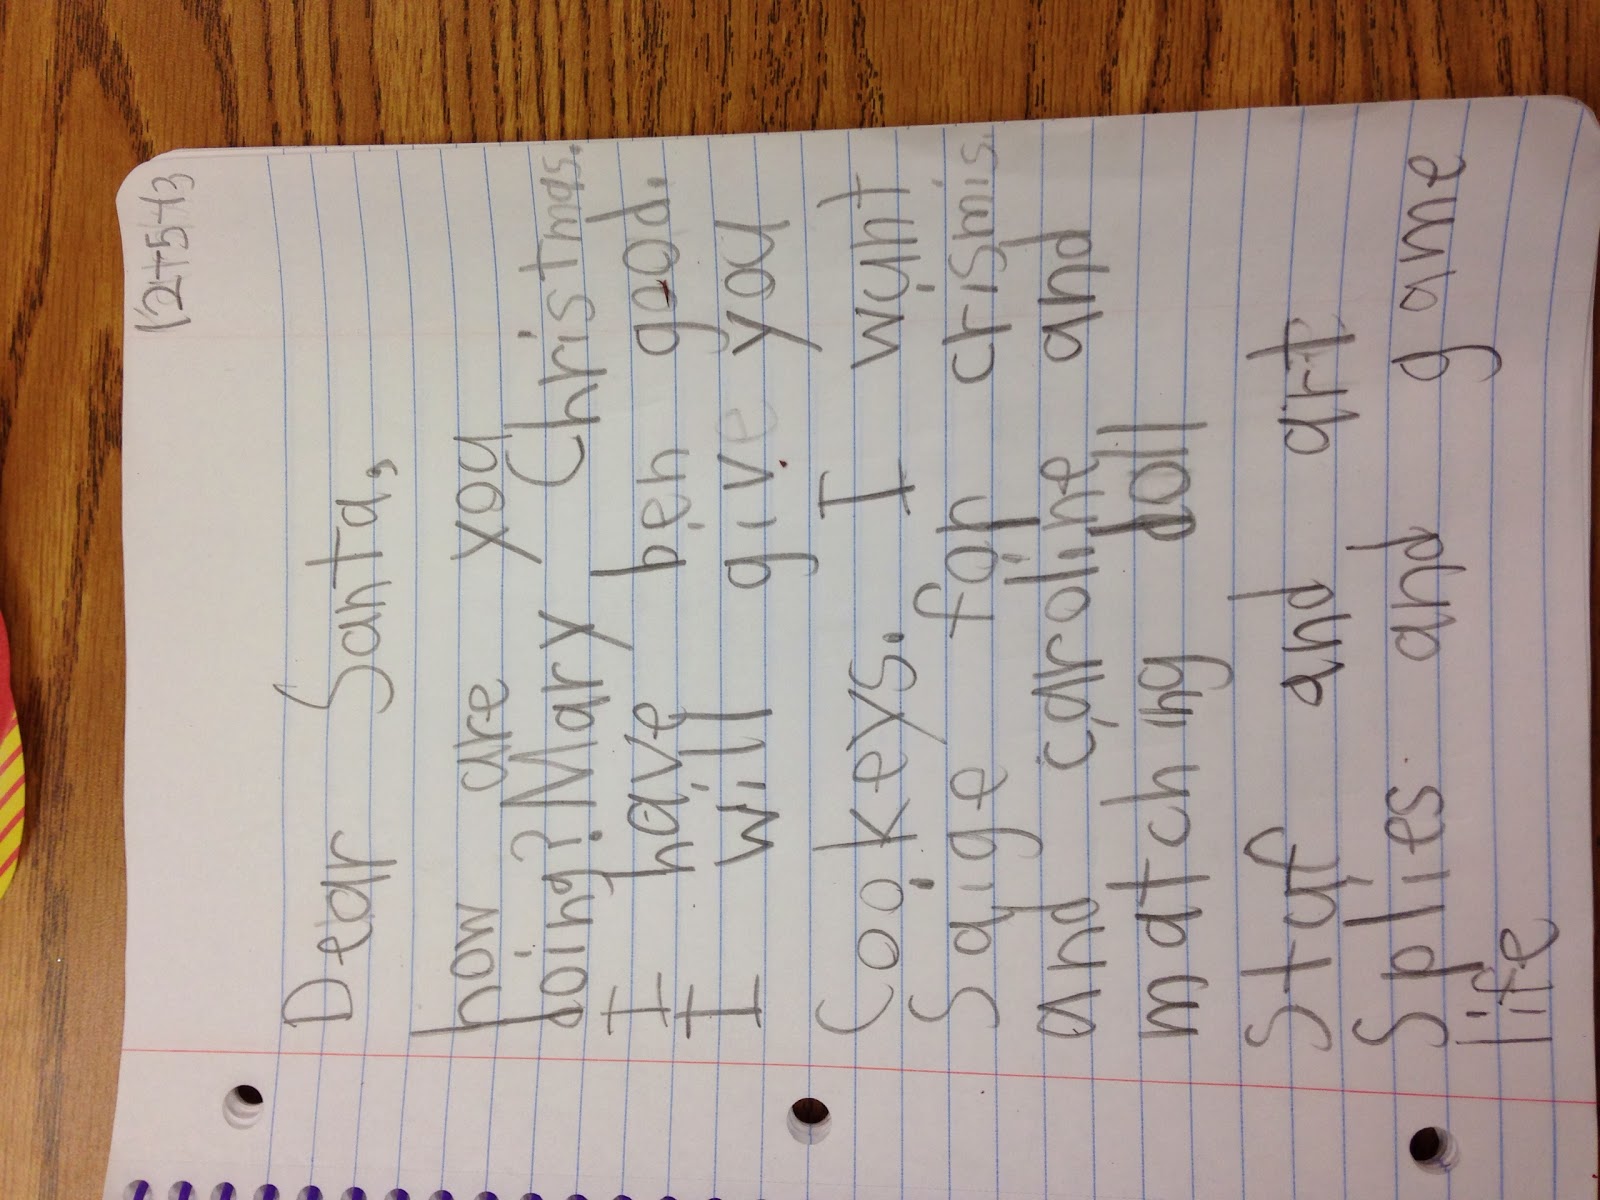 12+5+13
Dear Santa,
how are you
doing? Mary Christmas.
I have ben good.
I will give you
Cookeys. I want
Saige for crismis.
and caroline and
matching doll
Stuf and art
Splies and game
life